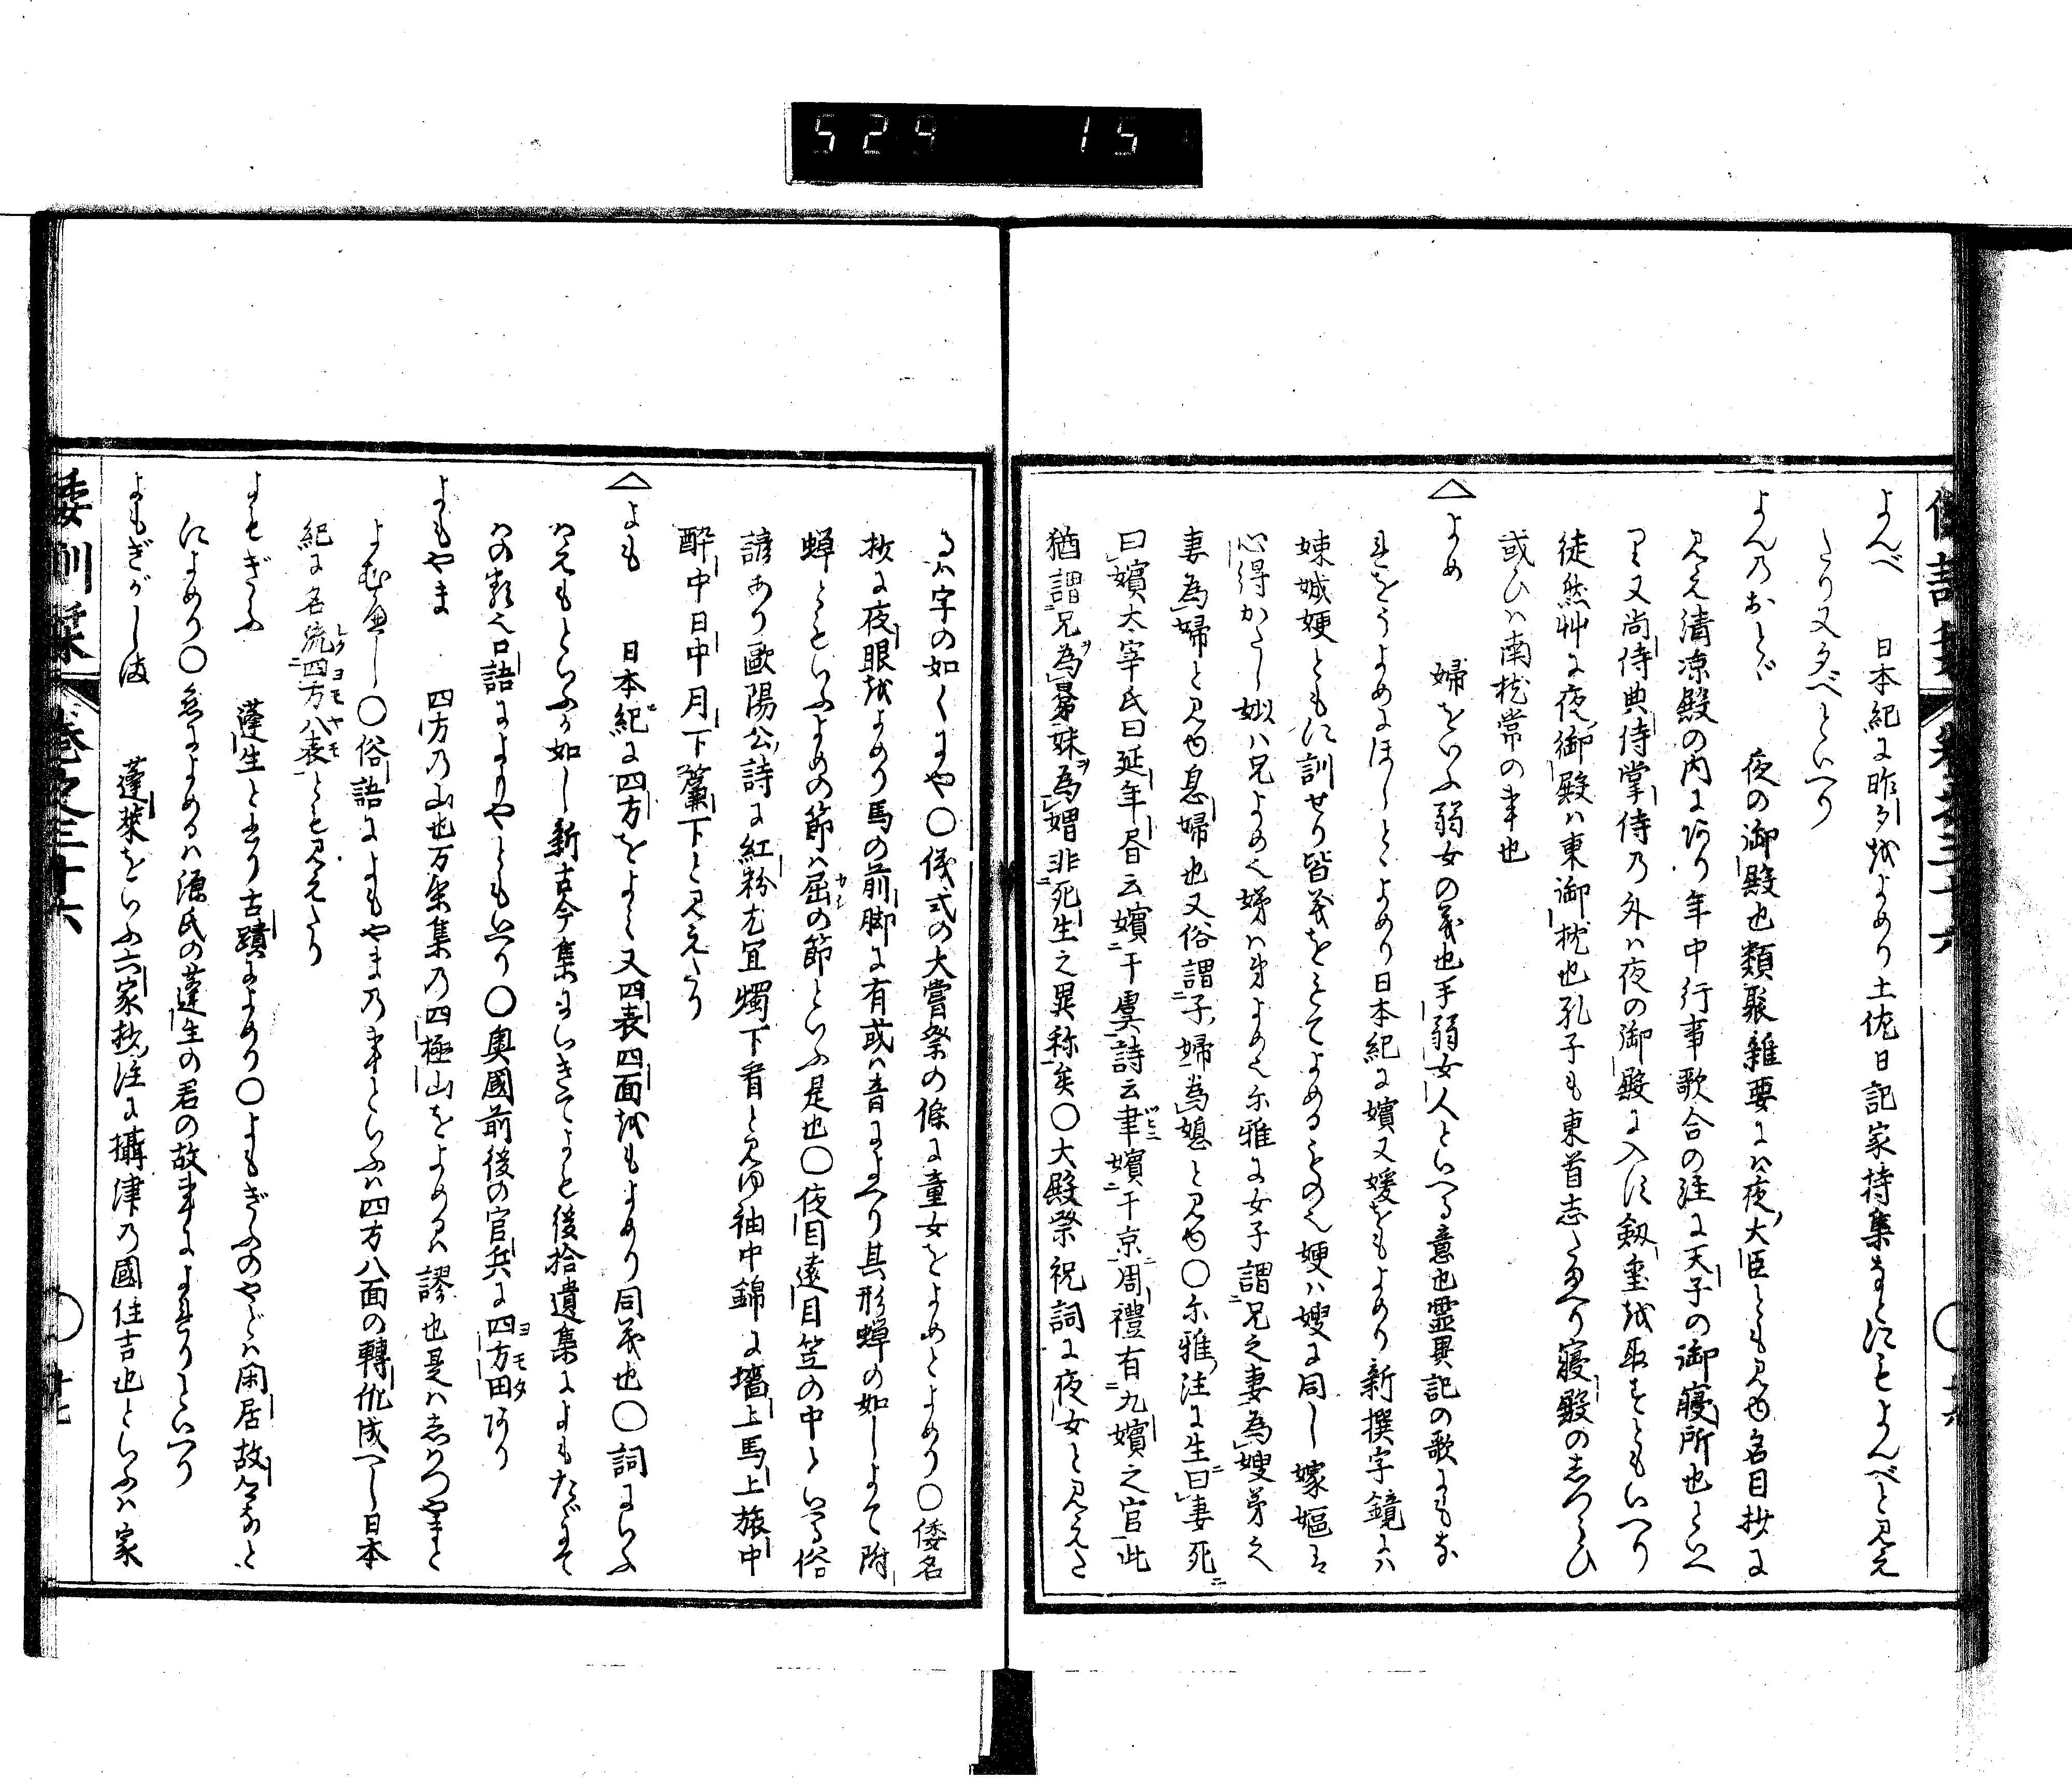 529 15
よんべ 日本紀に昨夕をよめり土佐日記家持集などにもよんべと見え
たり又夕べといへり
よんのおとゞ 夜の御殿也類聚雑要には夜大臣とも見ゆ名目抄に
見え清涼殿の内にあり年中行事歌合の注に天子の御寝所也といへ
り又尚侍典侍掌侍の外は夜の御殿に入ず劔璽を取ずともいへり
徒然艸に夜御殿は東御枕也孔子も東首したまへり寝殿のしつらひ
或ひは南枕常の事也
△よめ 婦をいふ弱女の義也手弱女人といへる意也霊異記の歌にもな
れをうよめにほしとよめり日本紀に嬪又媛をもよめり新撰字鏡には
娕娀娙ともに訓せり皆義をもてよめるもの也娙は嫂に同し嫁嫗は
心得かたし姒は兄よめ也娣は弟よめ也尓雅に女子謂兄之妻為嫂弟之
妻為婦と見ゆ息婦也又俗謂子婦為媳と見ゆ〇尓雅注に生曰妻死
曰嬪太宰氏曰延年昏云嬪于虞詩云聿嬪于京周禮有九嬪之官此
猶謂兄為㬅妹為媦非死生之異称矣〇大殿祭祝詞に夜女と見えた
るは字の如くにや〇儀式の大嘗祭の條に童女をよめとよめり〇倭名
抄に夜眼をよめり馬の前脚に有或は音によへり其形蝉の如しよて附
蝉ともいふよめの節は屈の節といふ是也〇夜目遠目笠の中といへる俗
諺あり歐陽公詩に紅粉尤宜燭下看と見ゆ袖中錦に墻上馬上旅中
酔中日中月下簾下と見えたり
△よも 日本紀に四方をよみ又四表四面をもよめり同義也〇詞にいふ
はえもといふが如し新古今集にいきてよも後拾遺集によもたゞにて
はの類也口語によりやともいへり〇奥國前後の官兵に四方田あり
よもやま 四方の山也万葉集の四極山をよめるは謬也是はしはつやまと
よむべし〇俗語によもやまの事といふは四方八面の轉化成へし日本
紀に名流四方八表とも見えたり
よもぎふ 蓬生と書り古蹟によめり〇よもぎふのやどは閑居故人なと
によめり〇恋によめるは源氏の蓬生の君の故事によれりといへり
よもぎがしま 蓬莱をいふ六家抄注に攝津の國住吉也といふは家
倭訓栞 巻之三十六 十七